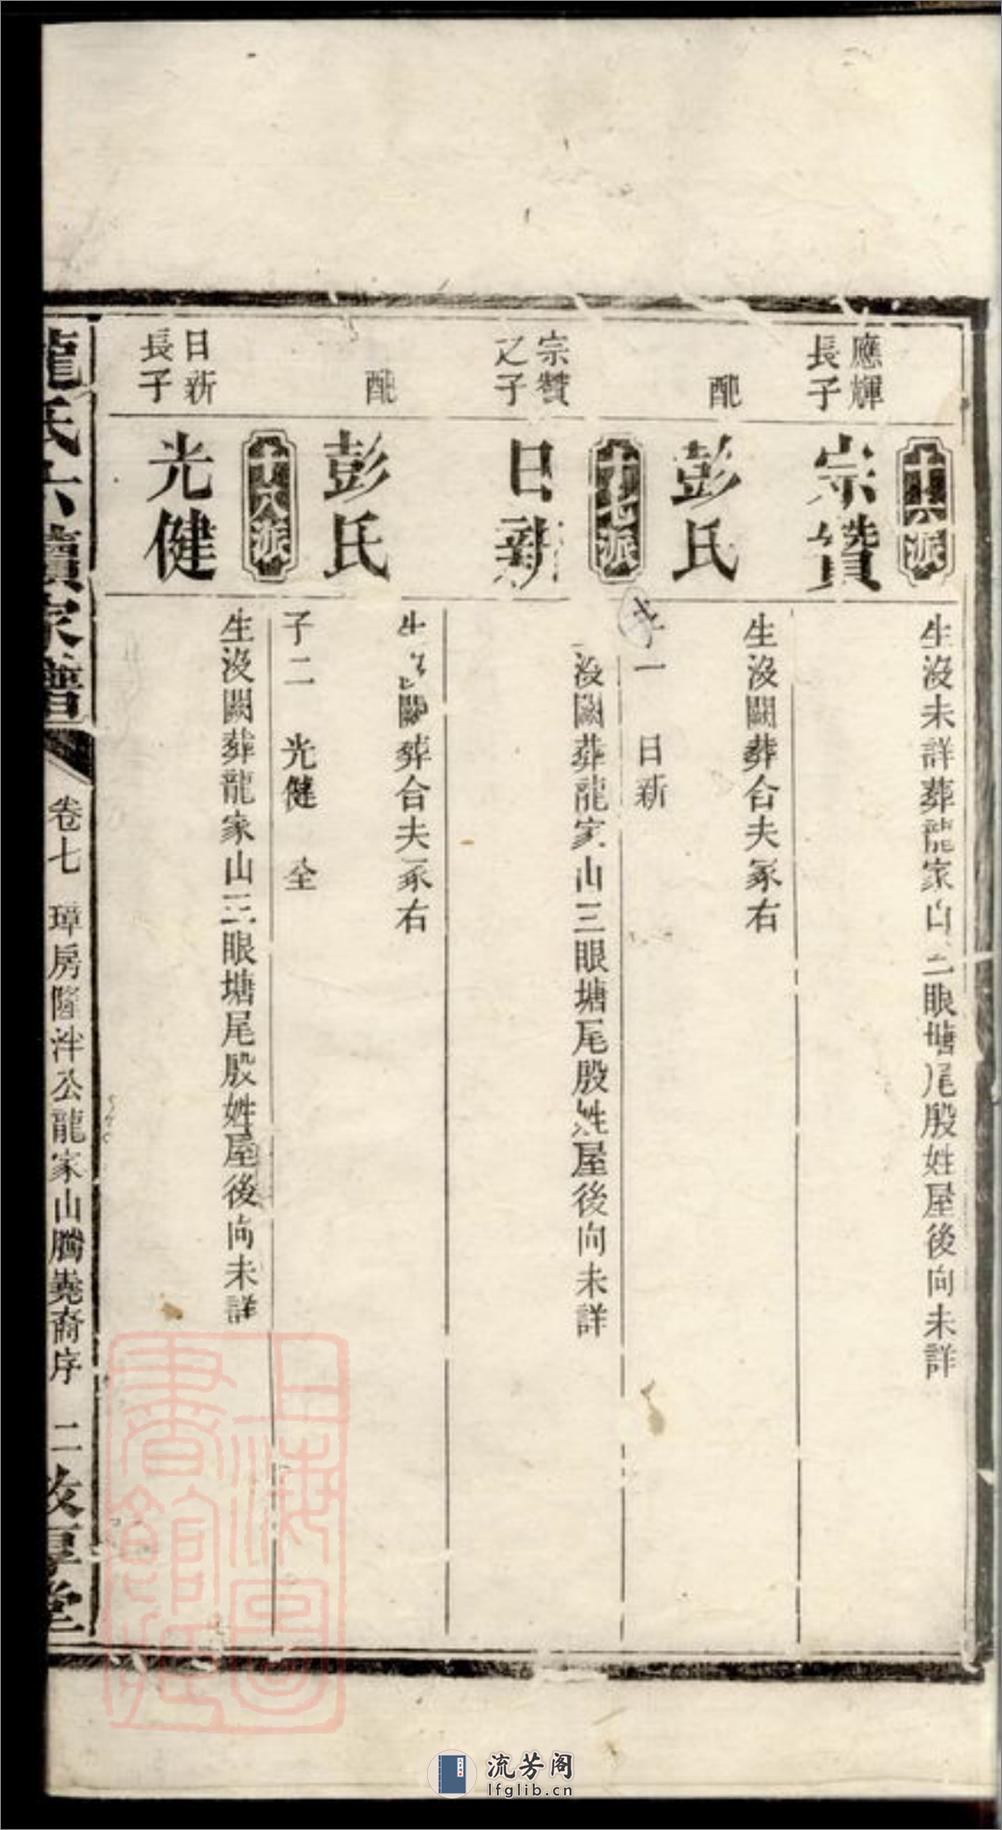 十六派
應輝
長子
宗贊
生沒未詳葬龍家山三眼塘尾殷姓屋後向未詳
配
彭氏
生沒闕葬合夫冢右
子一 日新
十七派
宗贊
之子
日新
沒闕葬龍家山三眼塘尾殷姓屋後向未詳
配
彭氏
生沒闕葬合夫冢右
子二 光健 全
十八派
日新
長子
光健
生沒闕葬龍家山三眼塘尾殷姓屋後向未詳
龍氏六續家譜
卷七 璋房隆泮公龍家山騰嵬裔序 二
敦厚堂
上海圖書館藏
流芳阁
lfglib.cn